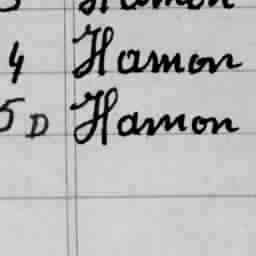 Hamon
4 Hamon
5 D Hamon